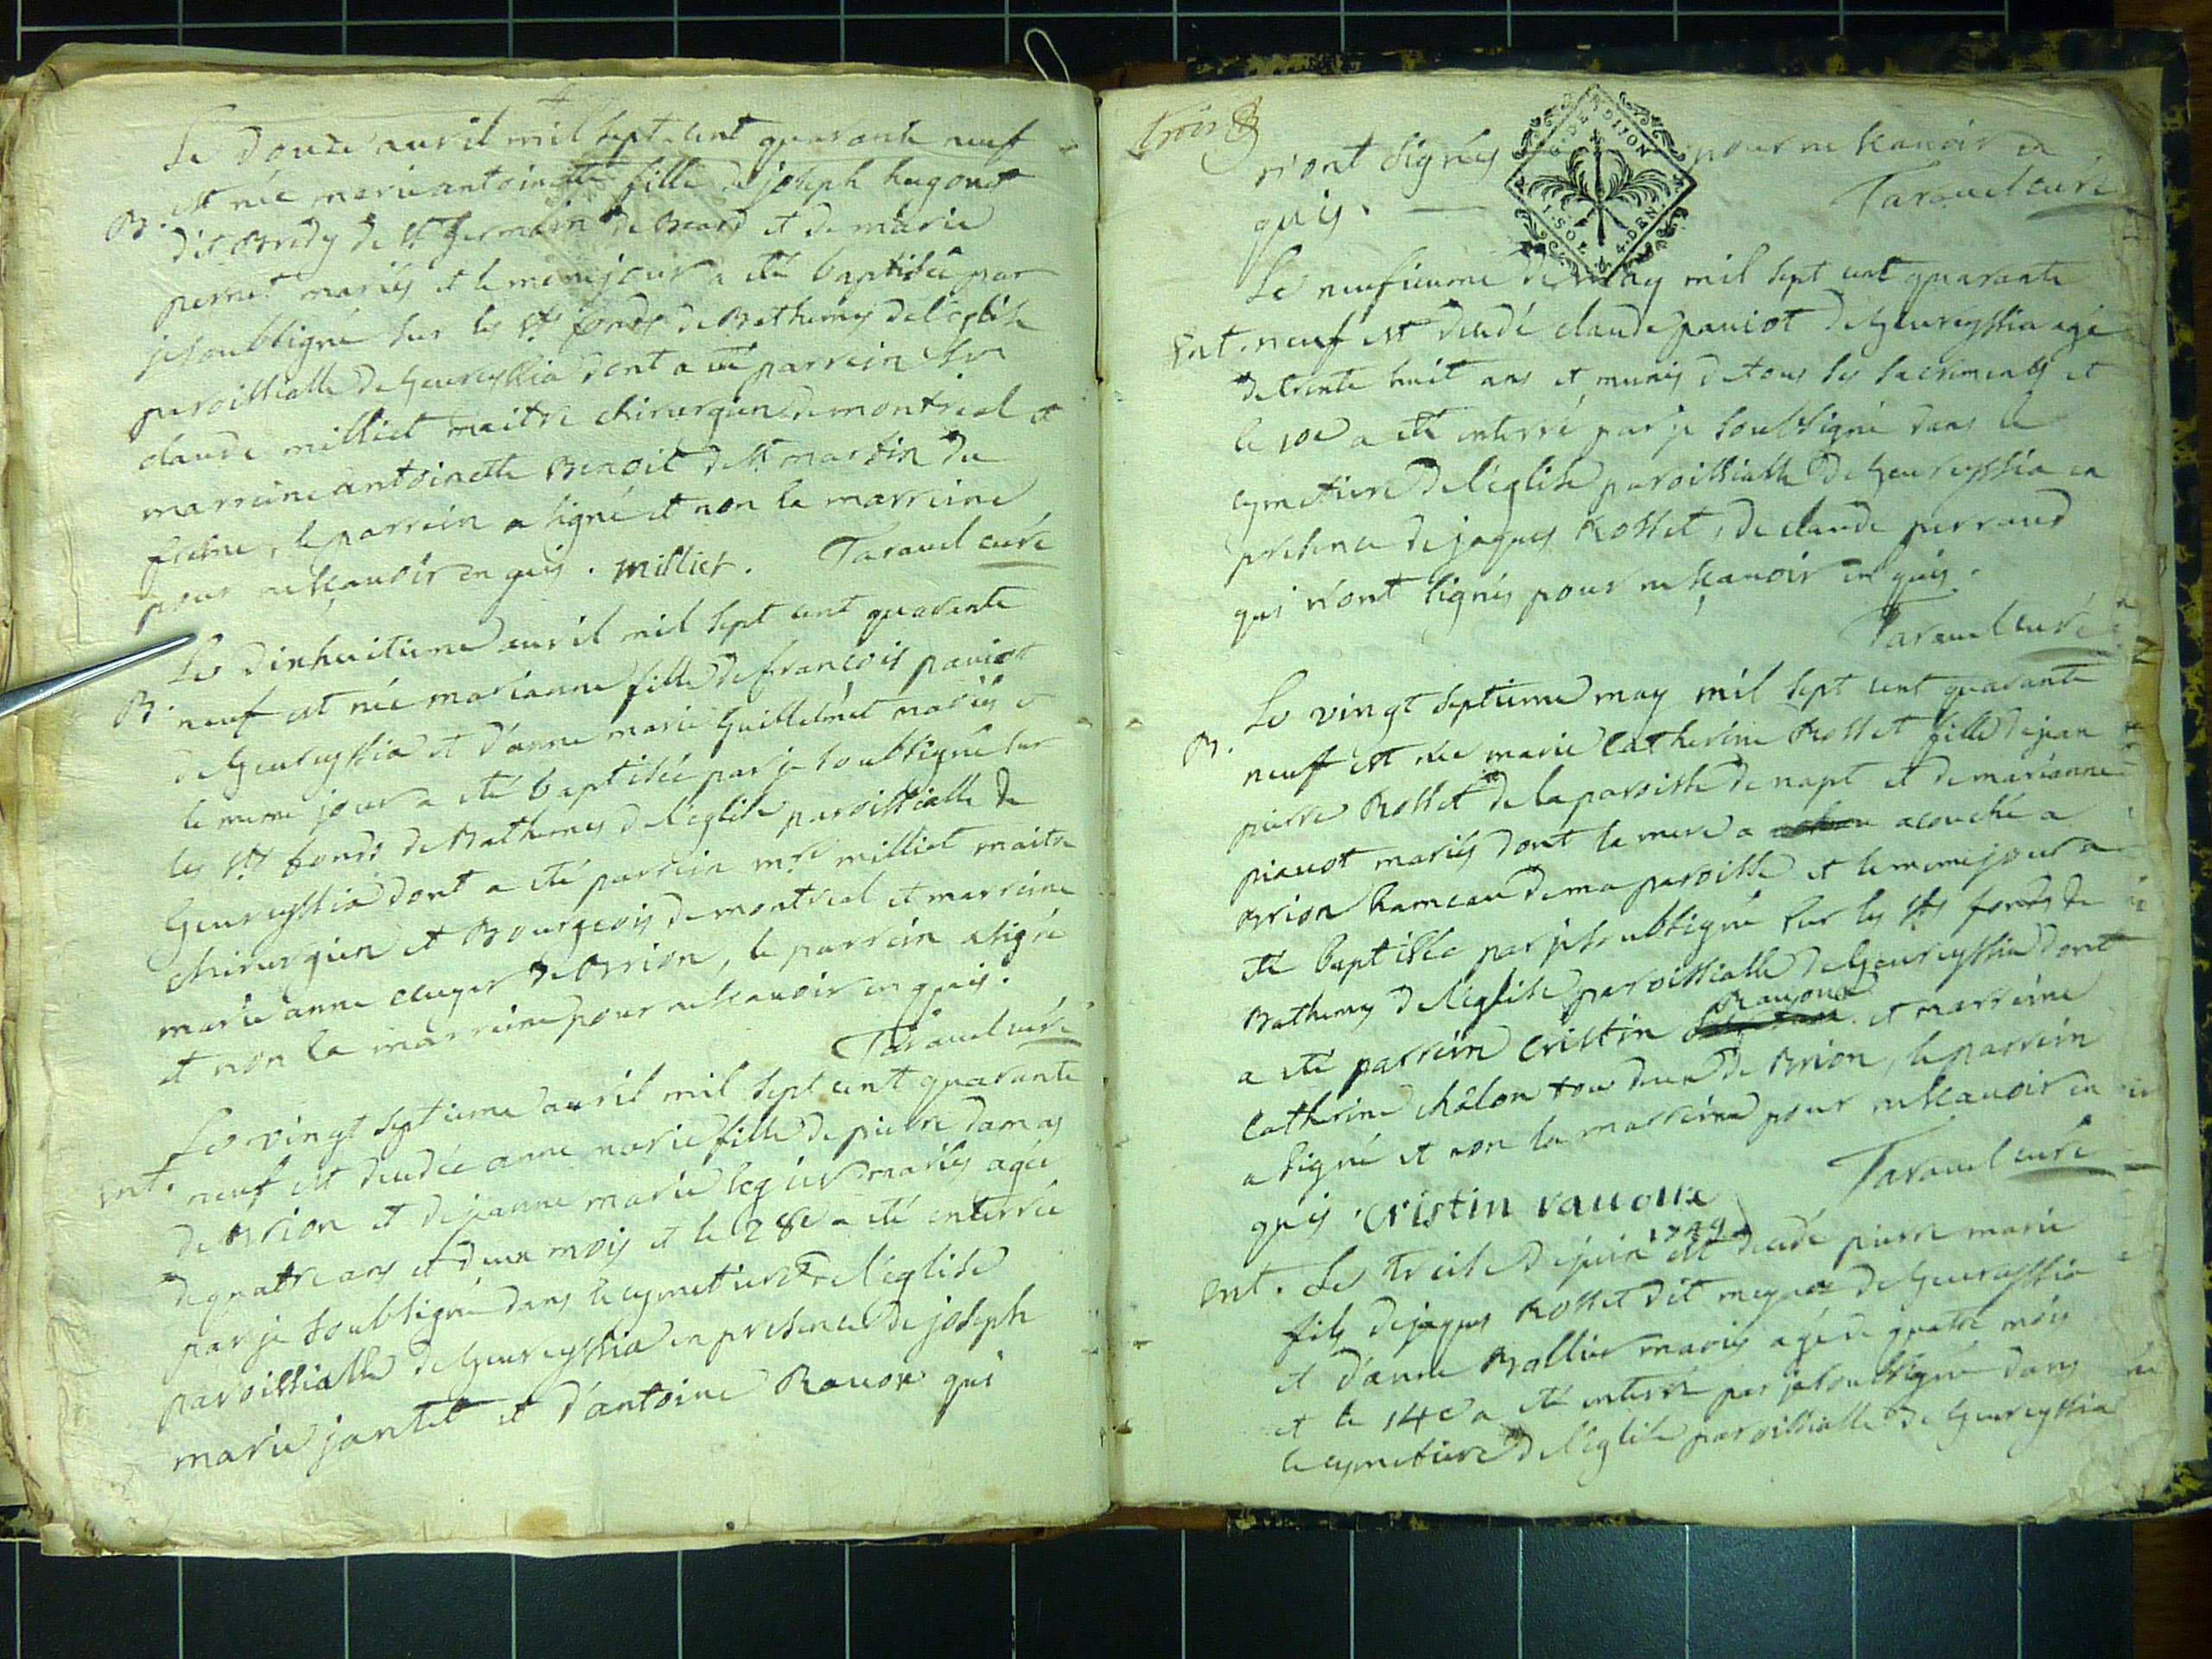 Le douze auril mil sept cent quarante neuf
B. est née marie antoinette fille de joseph hugonet
dit Bredy de st germain de Beard et de marie
pernet mariés et le meme jour a été baptisée par
je soubsigné sur les sts fonds de Bathemes de l'eglise
paroissialle de Geureyssia dont a été parrein Sr
claude milliet maitre chirurgien de montreal et
marreine antoinette Benoit de st martin du
frêne, le parrein a signé et non la marreine
pour ne scauoir en quis. milliet. Tarauel curé
Le dixhuitieme auril mil sept cent quarante
B. neuf est née marianne fille de francois pauiot
de Geureyssia et d'anne marie Guillelmet mariés et
le meme jour a été baptisée par je soubsigné sur
les sts fonds de Bathemes de l'eglise paroissialle de
Geureyssia dont a été parrein mre milliet maitre
chirurgien et Bourgeois de montreal et marreine
marie anne auger de Brion, le parrein a signé
et non la marreine pour ne scauoir en quis.
Tarauel curé
Le vingt septieme auril mil sept cent quarante
Ent. neuf est decedée anne marie fille de pierre damas
de Brion et de jeanne marie leger mariés agée
de quatre ans et deux mois et le 28e a été enterrée
par je soubsigné dans le cymetiere de l'eglise
paroissialle de Geureyssia en presence de joseph
marie jantet et d'antoine Rauoir qui
trois
n'ont signés pour ne scauoir en
quis. Tarauel curé
DE DIJON
1. SOL 4. DEN.
Le neufieme de may mil sept cent quarante
Ent. neuf est decedé claude pauiot de Geureyssia agé
de trente huit ans et munis de tous ses sacrements et
le 10e a été enterré par je soubsigné dans le
cymetiere de l'eglise paroissialle de Geureyssia en
presence de jaques Rosset, de claude perraud
qui n'ont signés pour ne scauoir en quis.
Tarauel curé
Le vingt septieme may mil sept cent quarante
B. neuf est née marie catherine Rosset fille de jean
pierre Rosset de la paroisse de napt et de marianne
piauot mariés dont la mere a acouché a
Brion hameau de ma paroisse et le meme jour a
été baptisée par je soubsigné sur les sts fonds de
Bathemes de l'eglise paroissialle de Geureyssia dont
a été parrein Cristin Rauoux et marreine
Catherine châlon tou deux de Brion, le parrein
a signé et non la marreine pour ne scauoir en
quis. Cristin rauoux Tarauel curé
Ent. Le treise de juin 1749 est decedé pierre marie
fils de jaques Rosset dit de Geureyssia
et d'anne Ballier mariés agé de quatre mois
et le 14e a été enterré par je soubsigné dans
le cymetiere de l'eglise paroissialle de Geureyssia